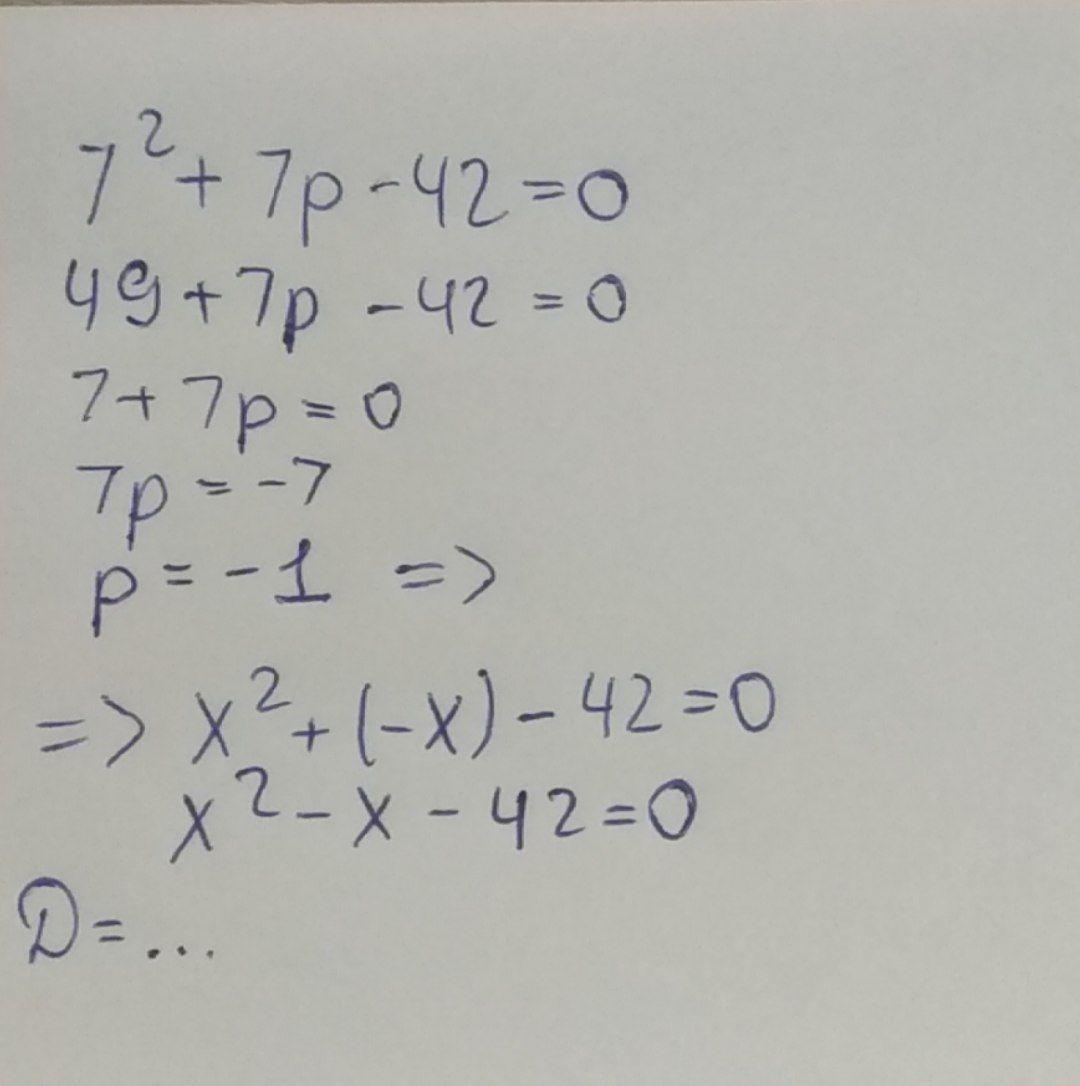 7² + 7p - 42 = 0
49 + 7p - 42 = 0
7 + 7p = 0
7p = -7
p = -1 =>
=> x² + (-x) - 42 = 0
x² - x - 42 = 0
D = ...